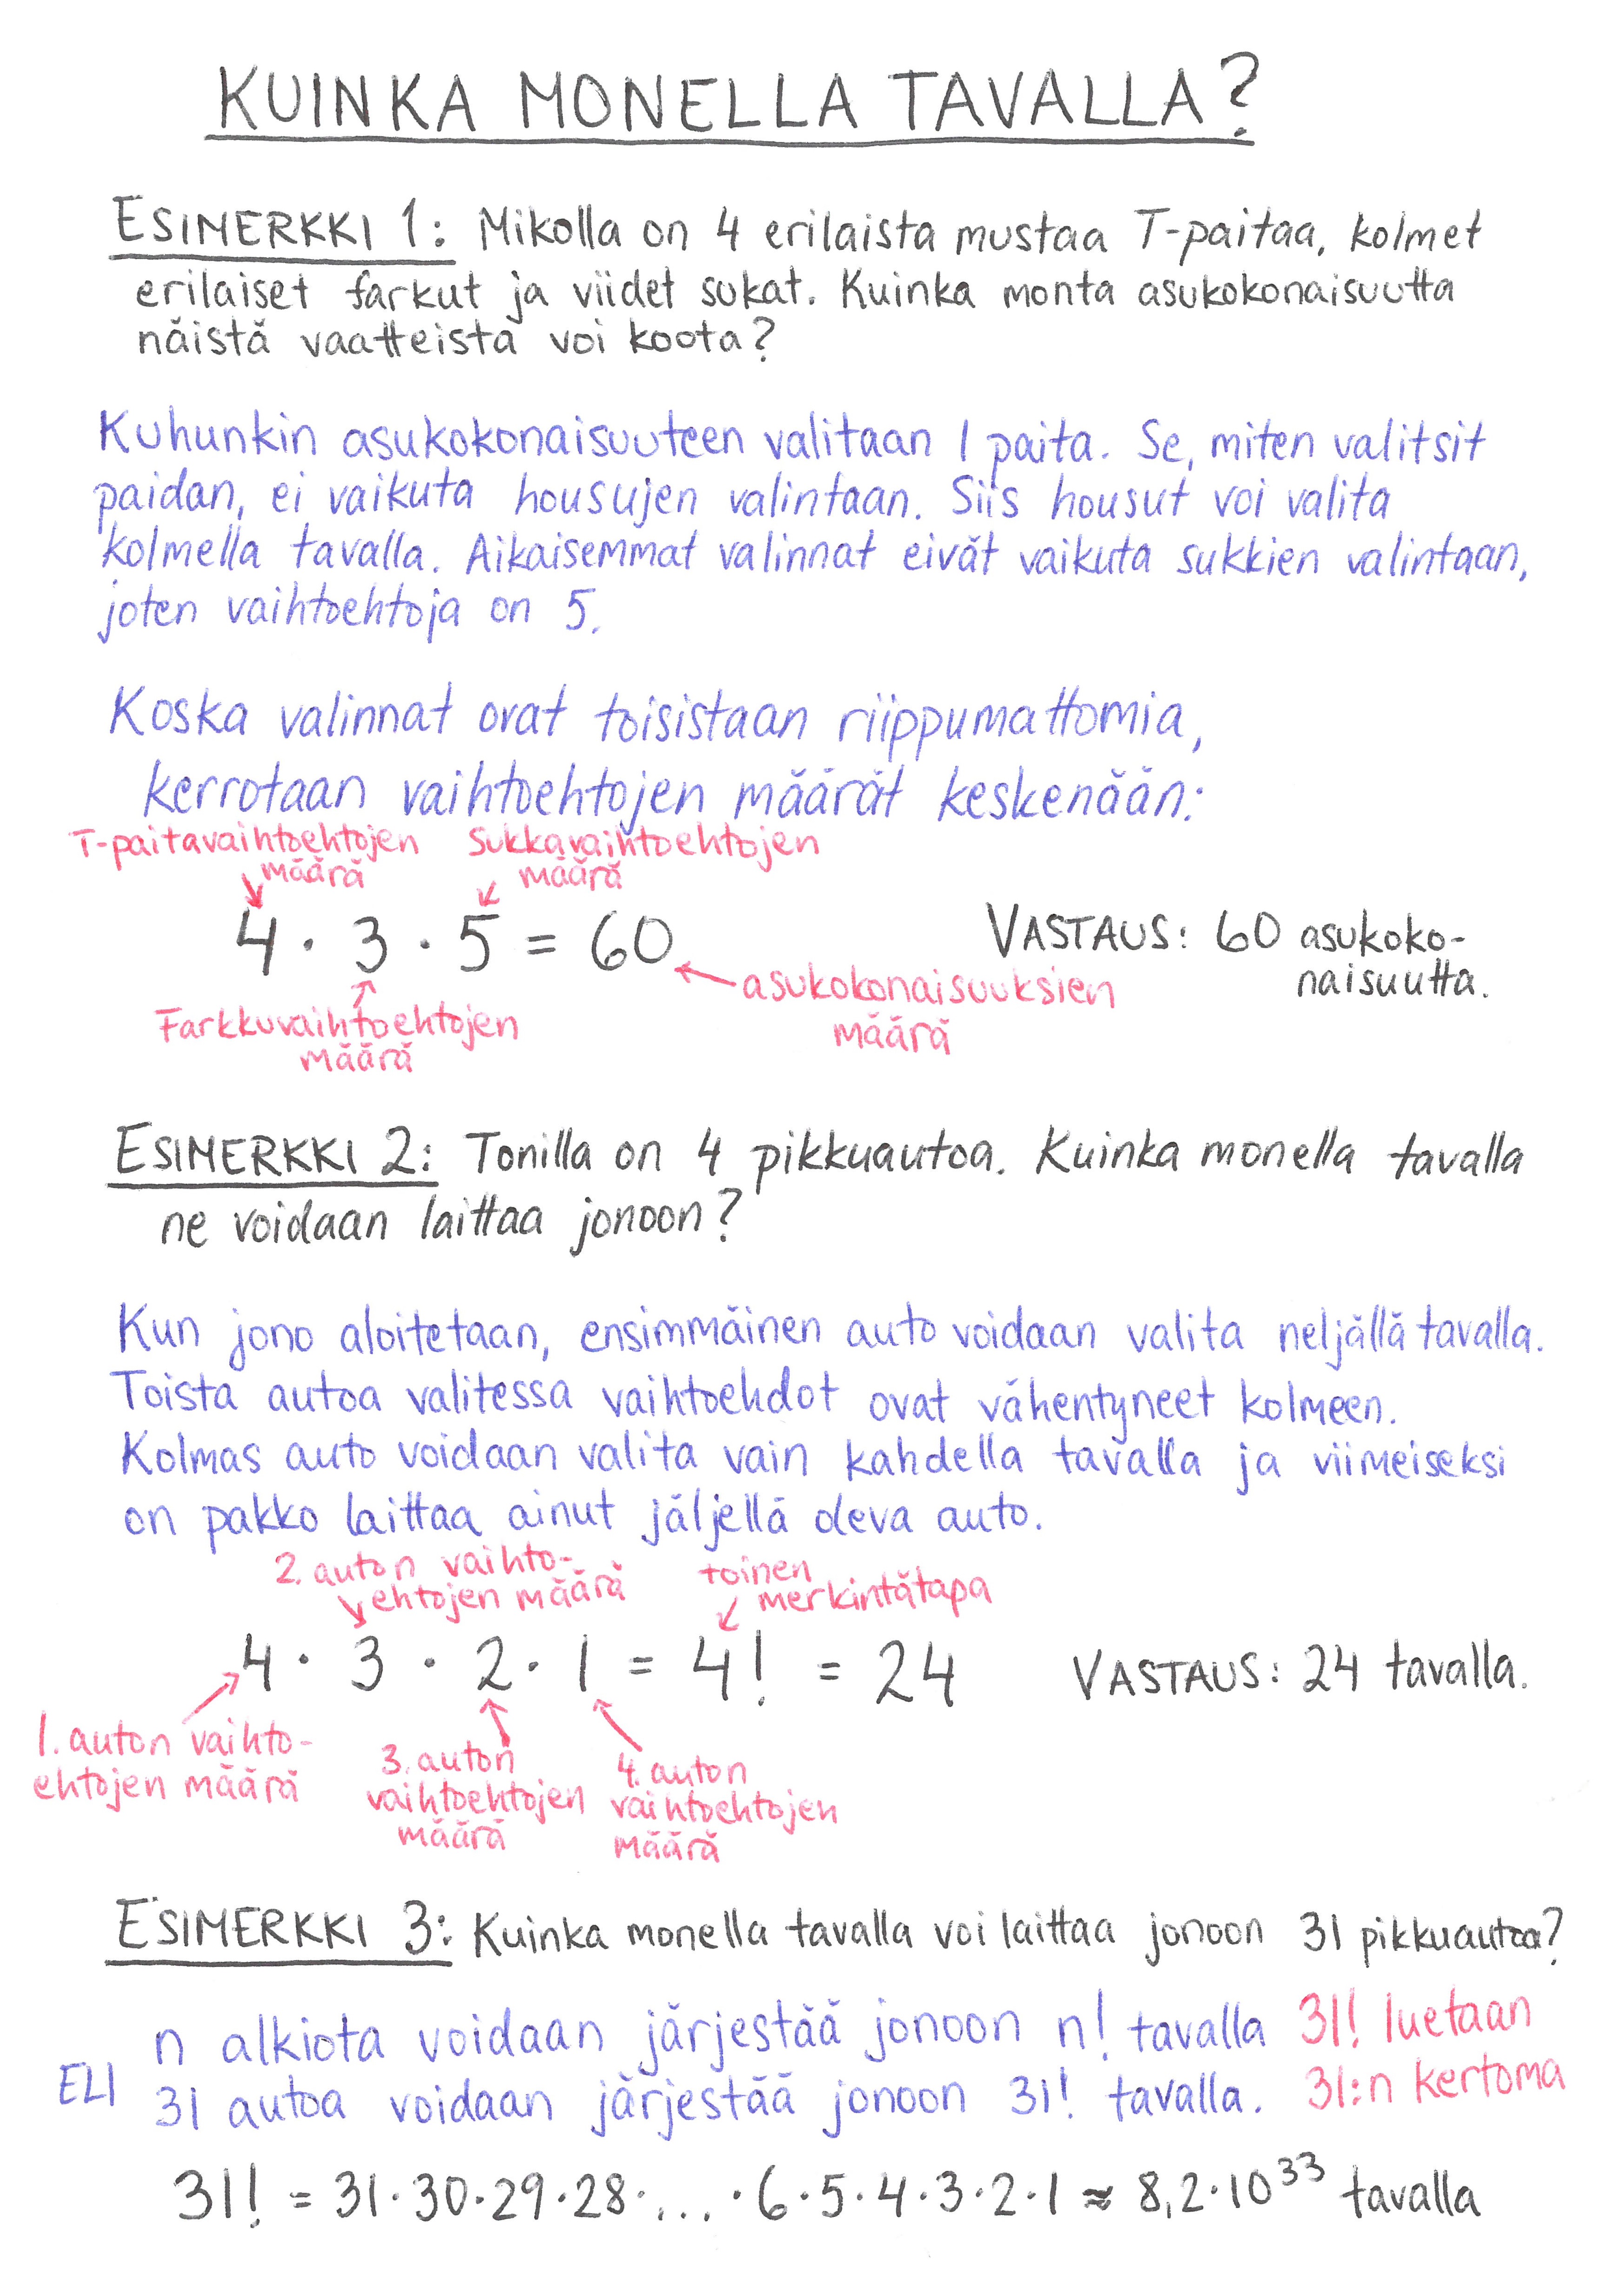 KUINKA MONELLA TAVALLA?
ESIMERKKI 1: Mikolla on 4 erilaista mustaa T-paitaa, kolmet
erilaiset farkut ja viidet sukat. Kuinka monta asukokonaisuutta
näistä vaatteista voi koota?
Kuhunkin asukokonaisuuteen valitaan 1 paita. Se, miten valitsit
paidan, ei vaikuta housujen valintaan. Siis housut voi valita
kolmella tavalla. Aikaisemmat valinnat eivät vaikuta sukkien valintaan,
joten vaihtoehtoja on 5.
Koska valinnat ovat toisistaan riippumattomia,
kerrotaan vaihtoehtojen määrät keskenään:
T-paitavaihtoehtojen
määrä
Sukkavaihtoehtojen
määrä
4 · 3 · 5 = 60
VASTAUS: 60 asukoko-
naisuutta.
asukokonaisuuksien
määrä
Farkkuvaihtoehtojen
määrä
ESIMERKKI 2: Tonilla on 4 pikkuautoa. Kuinka monella tavalla
ne voidaan laittaa jonoon?
Kun jono aloitetaan, ensimmäinen auto voidaan valita neljällä tavalla.
Toista autoa valitessa vaihtoehdot ovat vähentyneet kolmeen.
Kolmas auto voidaan valita vain kahdella tavalla ja viimeiseksi
on pakko laittaa ainut jäljellä oleva auto.
2. auton vaihto-
ehtojen määrä
toinen
merkintätapa
4 · 3 · 2 · 1 = 4! = 24
VASTAUS: 24 tavalla.
1. auton vaihto-
ehtojen määrä
3. auton
vaihtoehtojen
määrä
4. auton
vaihtoehtojen
määrä
ESIMERKKI 3: Kuinka monella tavalla voi laittaa jonoon 31 pikkuautoa?
n alkiota voidaan järjestää jonoon n! tavalla
ELI 31 autoa voidaan järjestää jonoon 31! tavalla.
31! luetaan
31:n kertoma
31! = 31·30·29·28·... ·6·5·4·3·2·1 ≈ 8,2·10³³ tavalla